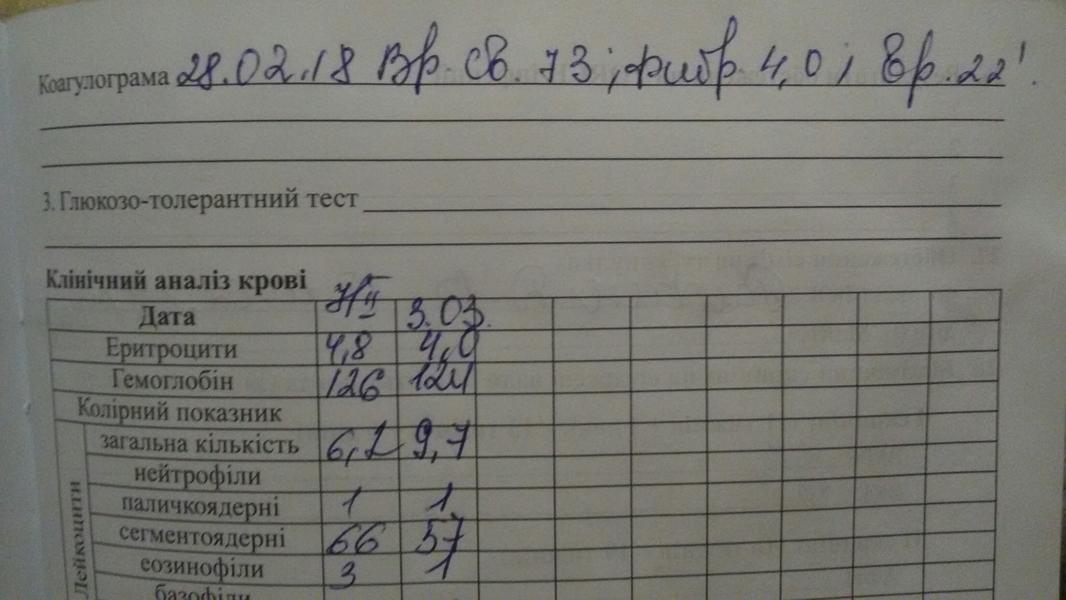 Коагулограма 28.02.18 Вр. Св. 73; фибр 4,0; Вр. 22'.
3. Глюкозо-толерантний тест
Клінічний аналіз крові
Дата 7/II 3.03.
Еритроцити 4,8 4,0
Гемоглобін 126 124
Колірний показник
Лейкоцити
загальна кількість 6,2 9,7
нейтрофіли
паличкоядерні 1 1
сегментоядерні 66 57
еозинофіли 3 1
базофіли